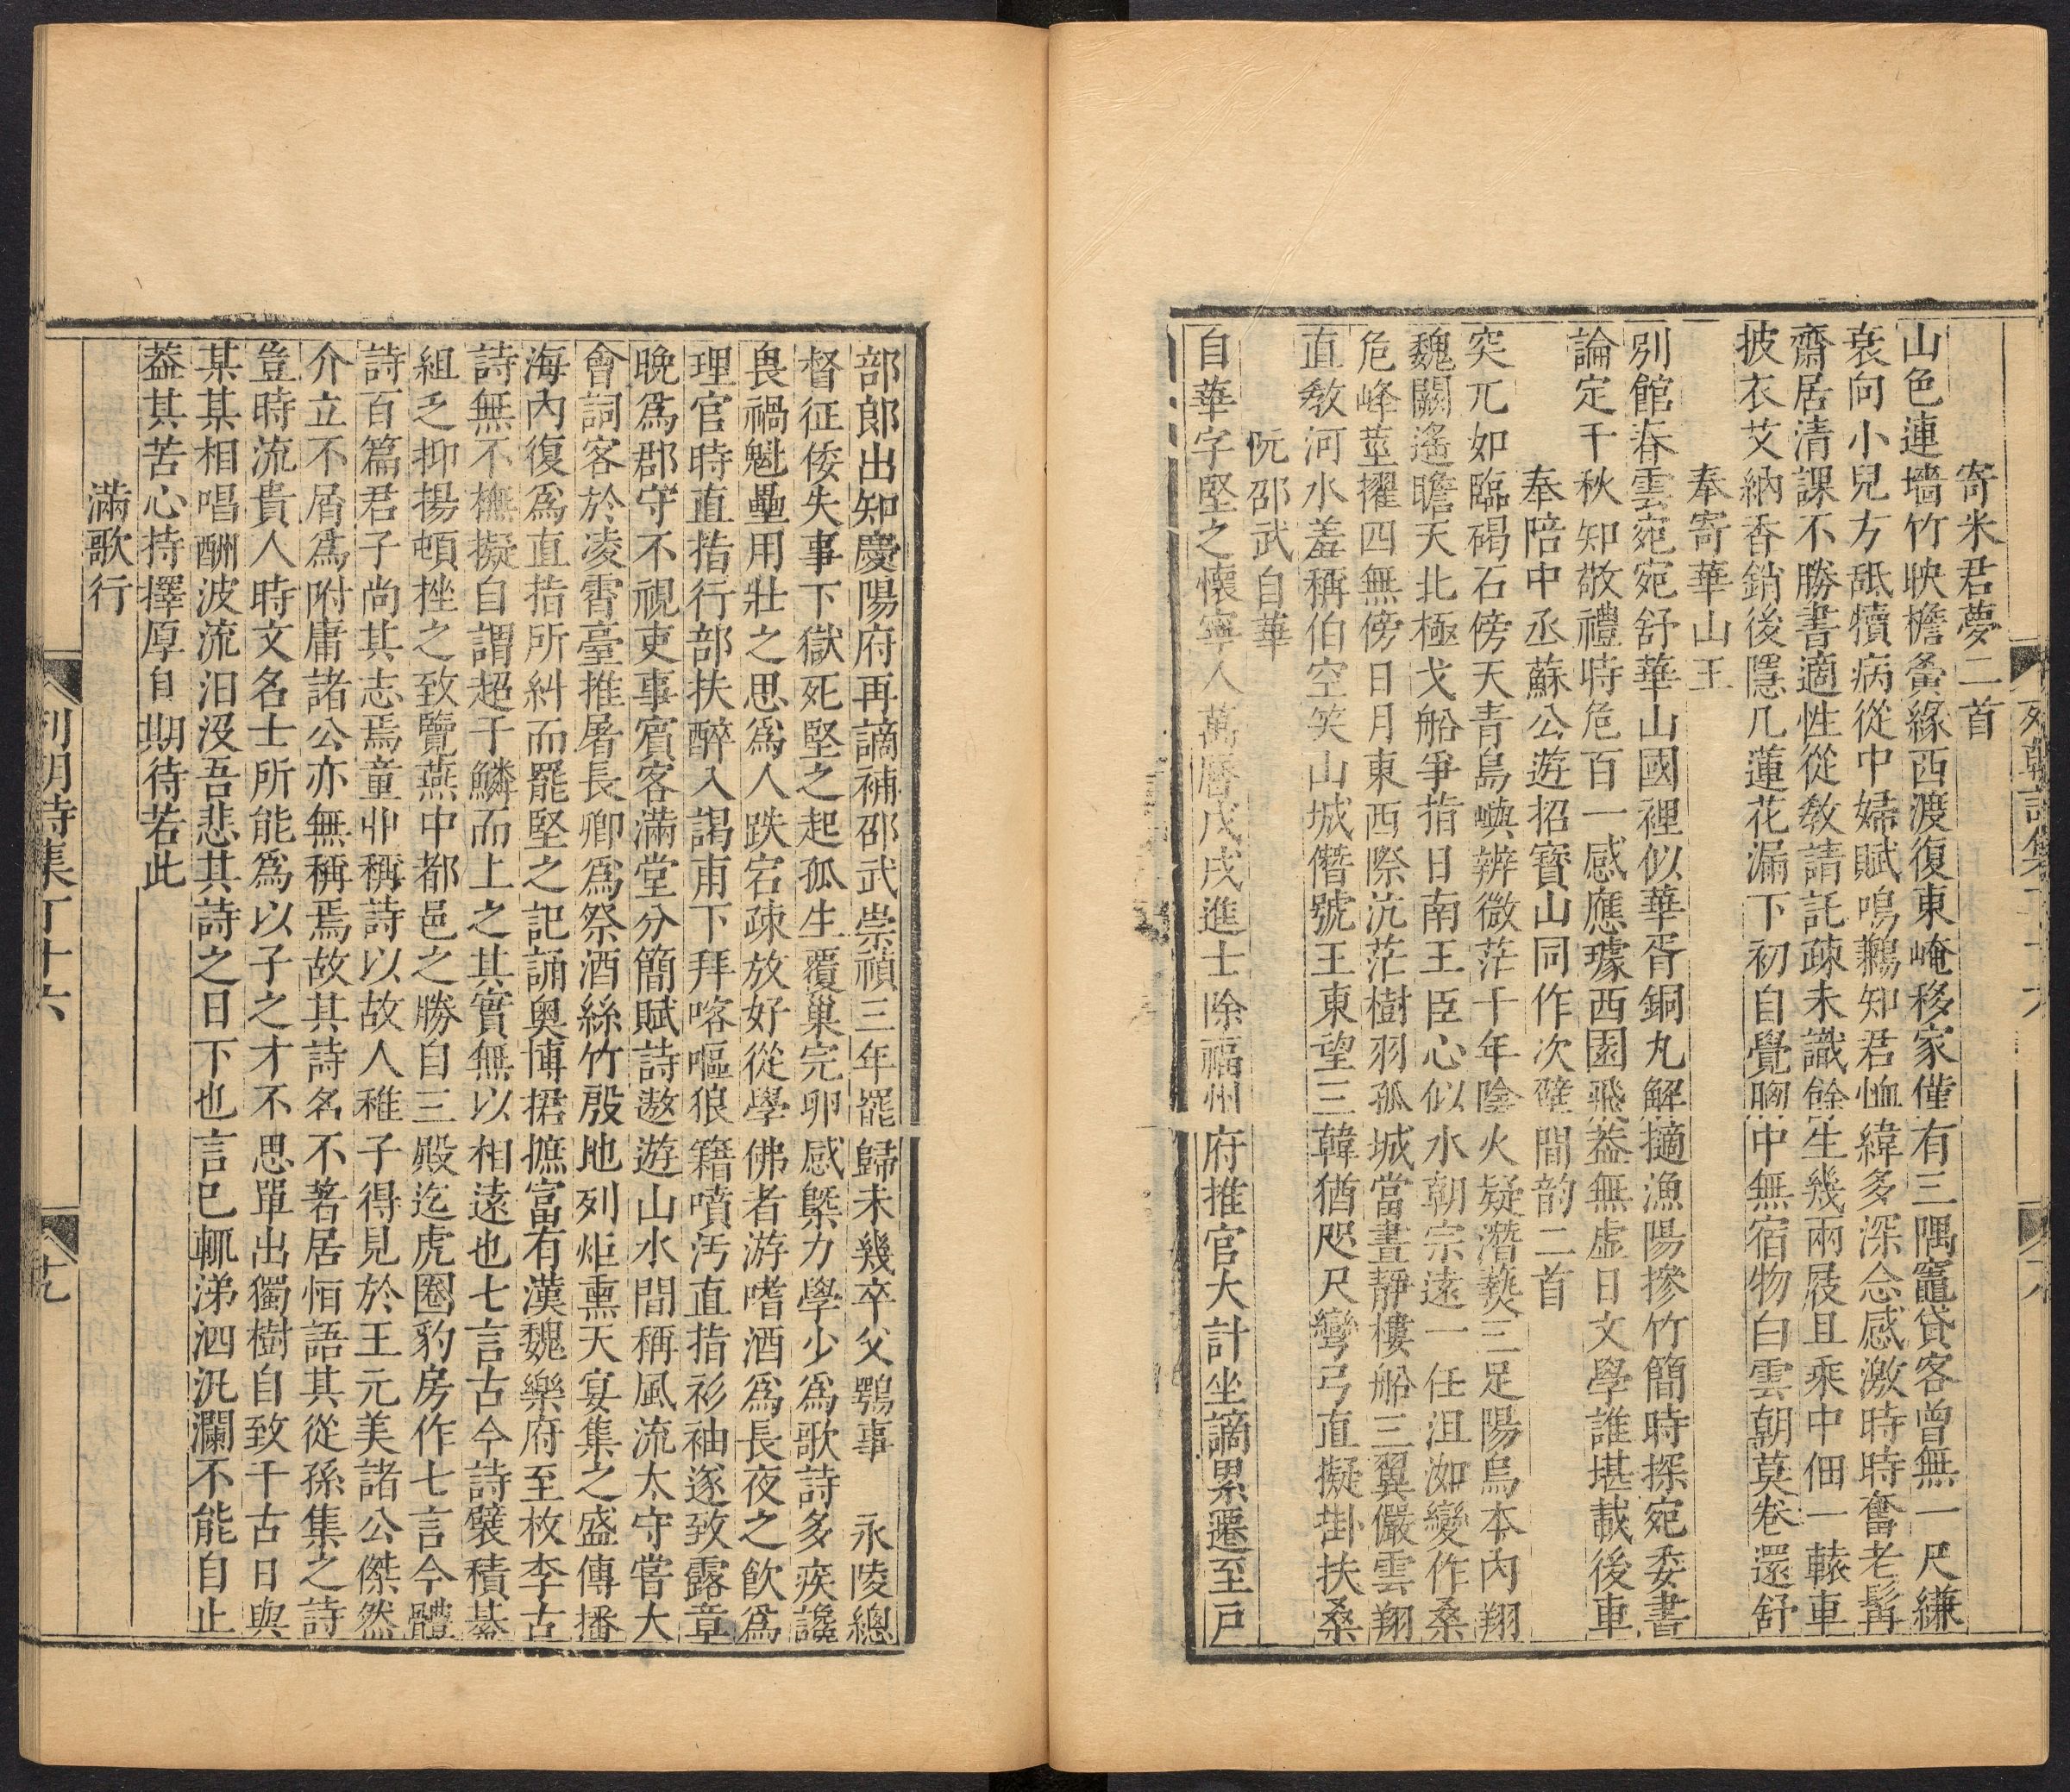 寄米君夢二首
山色連墻竹映檐夤緣西渡復東崦移家僅有三隅竈貸客曾無一尺縑
衰向小兒方舐犢病從中婦賦鳴鶼知君恤緯多深念感激時時奮老髯
齋居清課不勝書適性從教請託疎未識餘生幾兩屐且乘中佃一轅車
披衣艾納香銷後隱几蓮花漏下初自覺胸中無宿物白雲朝莫卷還舒
奉寄華山王
別館春雲宛宛舒華山國裡似華胥銅丸解擿漁陽摻竹簡時探宛委書
論定千秋知敬禮時危百一感應璩西園飛葢無虛日文學誰堪載後車
奉陪中丞蘇公遊招寶山同作次壁間韵二首
突兀如臨碣石傍天青島嶼辨微茫千年陰火疑潛爇三足陽烏本內翔
魏闕遙瞻天北極戈船爭指日南王臣心似水朝宗遠一任沮洳變作桑
危峰莖擢四無傍日月東西際沆茫樹羽孤城當晝靜樓船三翼儼雲翔
直教河水羞稱伯空笑山城僭號王東望三韓猶咫尺彎弓直擬掛扶桑
阮邵武自華
自華字堅之懷寧人萬曆戊戌進士除福州府推官大計坐謫累遷至戶
部郎出知慶陽府再謫補邵武崇禎三年罷歸未幾卒父鶚事 永陵總
督征倭失事下獄死堅之起孤生覆巢完卵感槩力學少為歌詩多疾讒
畏禍魁壘用壯之思為人跌宕疎放好從學佛者游嗜酒為長夜之飲為
理官時直指行部扶醉入謁甫下拜喀嘔狼籍噴汚直指衫袖遂致露章
晚為郡守不視吏事賓客滿堂分簡賦詩遨遊山水間稱風流太守嘗大
會詞客於凌霄臺推屠長卿為祭酒絲竹殷地列炬熏天宴集之盛傳播
海內復為直指所糾而罷堅之記誦奧博捃摭富有漢魏樂府至枚李古
詩無不橅擬自謂超于鱗而上之其實無以相遠也七言古今詩襞積綦
組乏抑揚頓挫之致覽燕中都邑之勝自三殿迄虎圈豹房作七言今體
詩百篇君子尚其志焉童丱稱詩以故人稚子得見於王元美諸公傑然
介立不屑為附庸諸公亦無稱焉故其詩名不著居恒語其從孫集之詩
豈時流貴人時文名士所能為以子之才不思單出獨樹自致千古日與
某某相唱酬波流汨沒吾悲其詩之日下也言已輒涕泗汍瀾不能自止
葢其苦心持擇厚自期待若此
滿歌行
列朝詩集丁十六